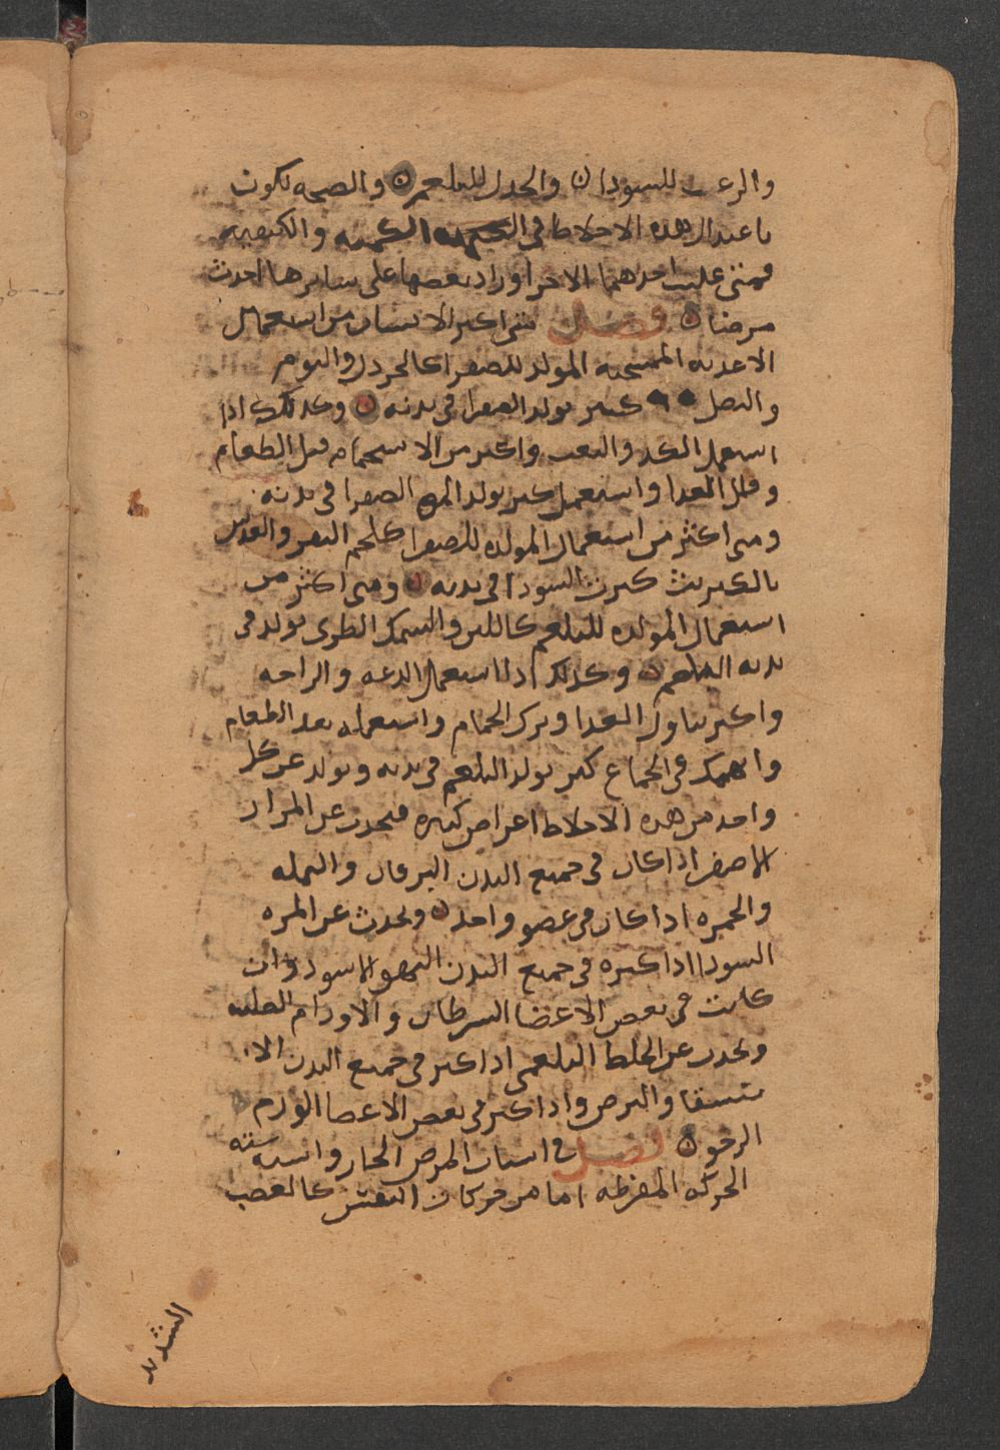 والرعب للسودا ن والجدل للبلغم ن والصحه تكون
باعتدال هذه الاخلاط في الكميه والكيفيه
فمتى غلب احدهما الاخر او زاد بعضها على سايرها احدث
مرضا ن فصل متى اكثر الانسان من استعمال
الاغديه المسخنه المولد للصفرا كالخردل والثوم
والبصل كثير تولد الصفرا في بدنه ن وكدلك ادا
استعمل الكد والتعب واكثر من الاستحمام قبل الطعام
وقلل الغدا واستعمل كثر تولد الصفرا في بدنه
ومتى اكثر من استعمال المولده للصفرا كلحم البقر والعدس
بالكبريت كثرت السودا في بدنه ن ومتى اكثر من
استعمال المولده للبلغم كاللبن والسمك الطرى تولد في
بدنه البلغم ن وكدلك ادا استعمل الدعه والراحه
واكثر تناول الغدا وترك الحمام واستعماله بعد الطعام
وانهمك في الجماع كثر تولد البلغم في بدنه ويتولد عن كل
واحد من هده الاخلاط اعراض كثيره فيحدث عن المرار
الاصفر ادا كان في جميع البدن اليرقان والنمله
والحمره ادا كان في عضو واحد ن ويحدث عن المره
السودا ادا كثره في جميع البدن البهق الاسود وان
كانت في بعض الاعضا السرطان والاورام الصلبه
ويحدث عن الخلط البلغمى ادا كثر في جميع البدن الا
ستسقا والبرص وادا كثر في بعض الاعضا الورم
الرخو ن فصل في اسباب المرض الحار واسبابه سته
الحركه المفرطه اما من حركات النفس كالغضب
الشديد